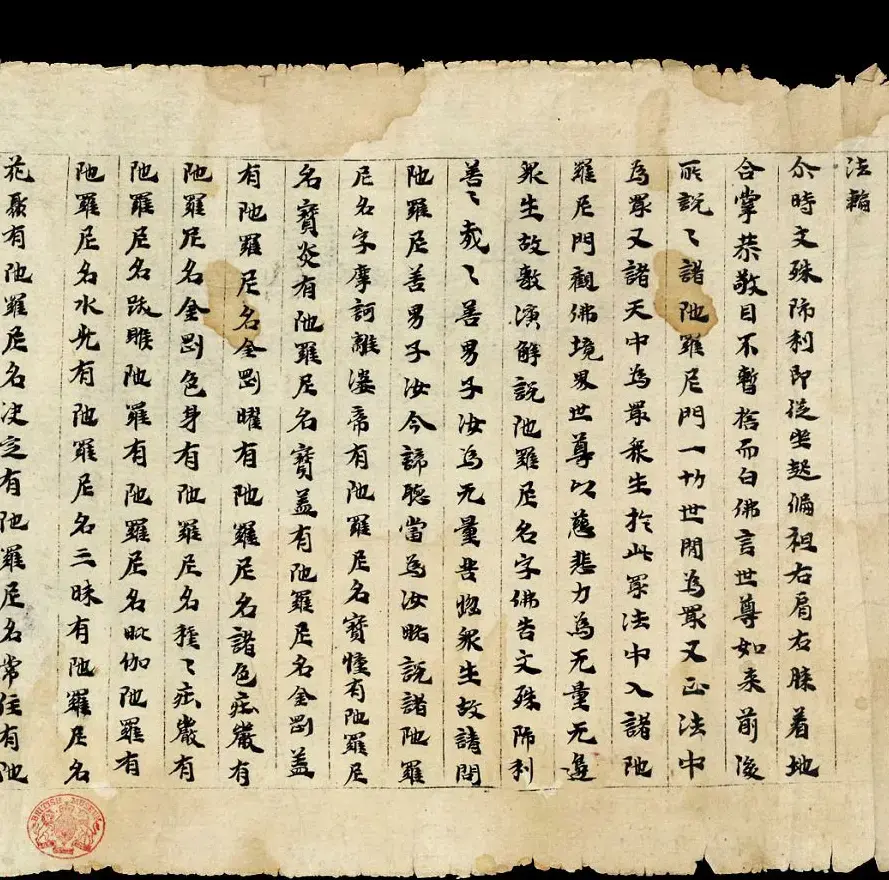 法輪
尒時文殊師利即從坐起偏袒右肩右膝着地
合掌恭敬目不暫捨而白佛言世尊如来前後
所說〻諸陁羅尼門一切世閒為冣又正法中
為冣又諸天中為冣衆生於此冣法中入諸陁
羅尼門觀佛境界世尊以慈悲力為无量无邊
衆生故敷演解說陁羅尼名字佛告文殊師利
善〻哉〻善男子汝為无量苦惱衆生故請問
陁羅尼善男子汝今諦聽當為汝略說諸陁羅
尼名字摩訶離婆帝有陁羅尼名寶幢有陁羅尼
名寶炎有陁羅尼名寶盖有陁羅尼名金剛盖
有陁羅尼名金剛曜有陁羅尼名諸色庄嚴有
陁羅尼名金剛色身有陁羅尼名種〻庄嚴有
陁羅尼名跋睺陁羅有陁羅尼名毗伽陁羅有
陁羅尼名水光有陁羅尼名三昧有陁羅尼名
花聚有陁羅尼名决定有陁羅尼名常住有陁
BRITISH MUSEUM